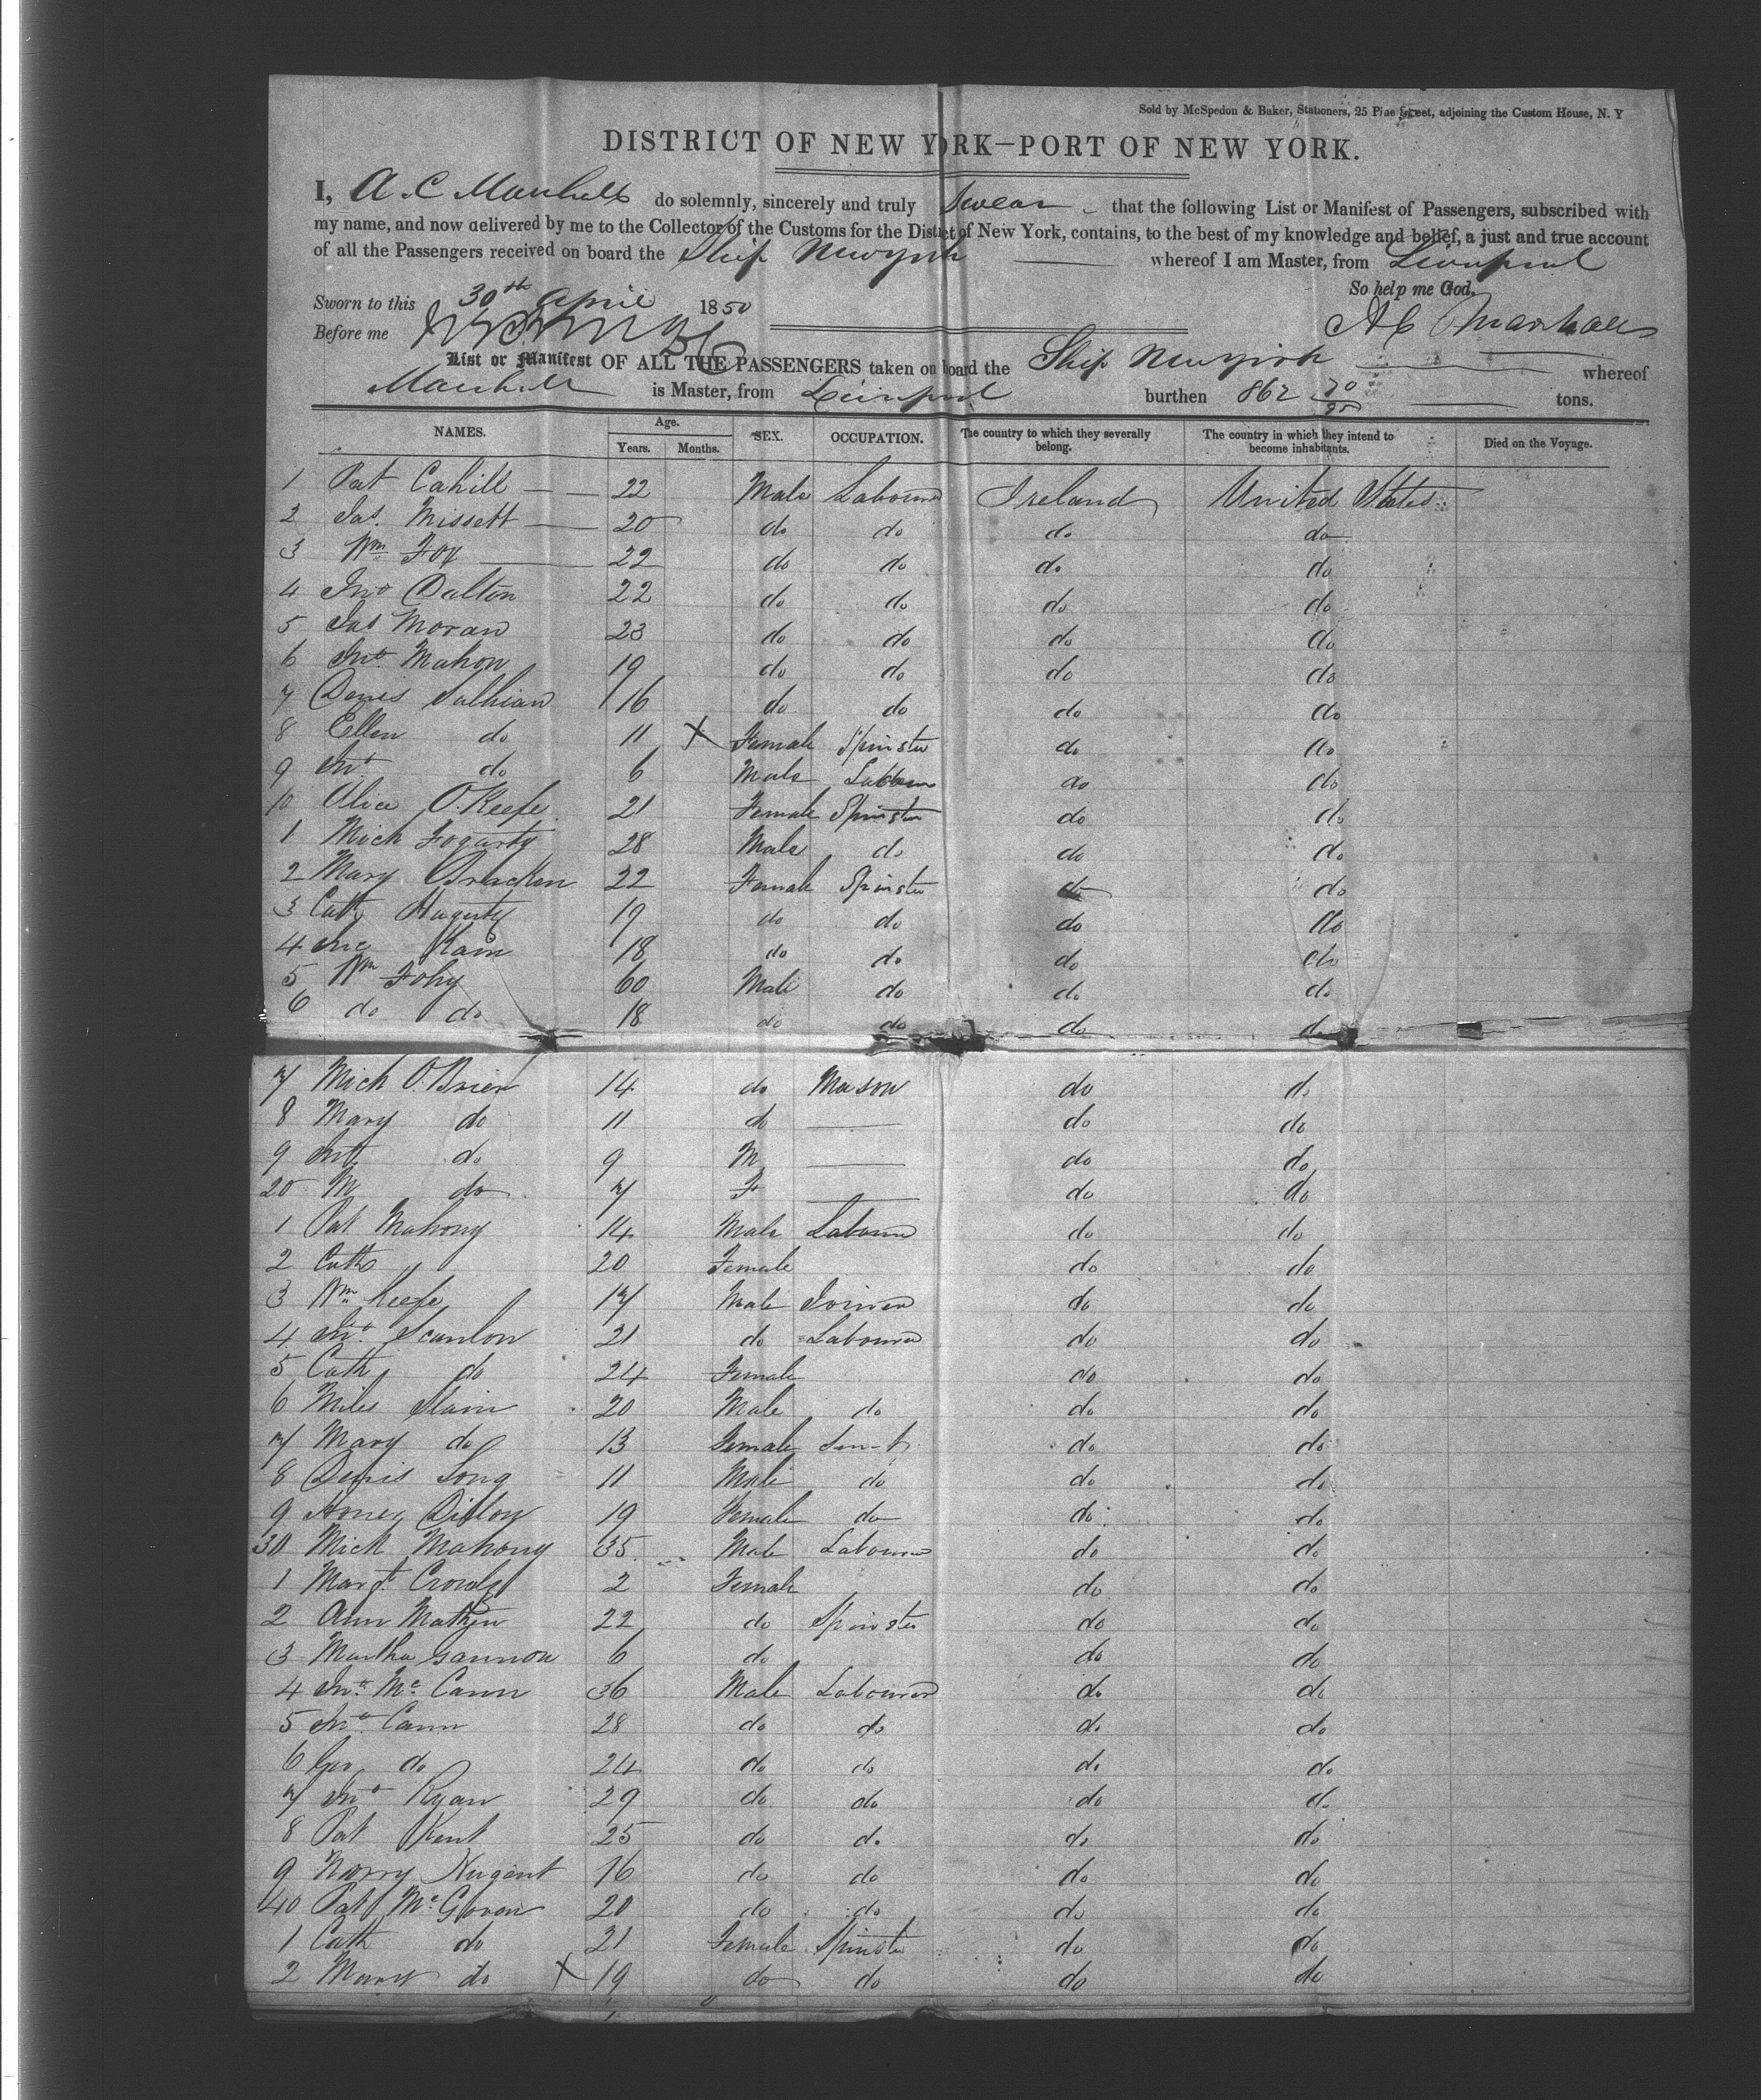 Sold by McSpedon & Baker, Stationers, 25 Pine Street, adjoining the Custom House, N. Y
DISTRICT OF NEW YORK—PORT OF NEW YORK.
I, A. C Marshall do solemnly, sincerely and truly Swear that the following List or Manifest of Passengers, subscribed with
my name, and now delivered by me to the Collector of the Customs for the District of New York, contains, to the best of my knowledge and belief, a just and true account
of all the Passengers received on board the Ship New York whereof I am Master, from Liverpool
So help me God.
Sworn to this 30th April 1850
A C Marshall
Before me
List or Manifest OF ALL THE PASSENGERS taken on board the Ship New York whereof
Marshall is Master, from Liverpool burthen 862 tons.
NAMES. Age. Years. Months. SEX. OCCUPATION. The country to which they severally belong. The country in which they intend to become inhabitants. Died on the Voyage.
1 Pat Cahill 22 Male Labourer Ireland United States
2 Jas. Missett 20 do do do do
3 Wm Fox 22 do do do do
4 Jno Dalton 22 do do do do
5 Jas Moran 23 do do do do
6 Jno Mahon 19 do do do do
7 Denis 16 do do do do
8 Ellen do 11 X Female Spinster do do
9 Jno do 6 Male Labourer do do
10 Alice O.Keefe 21 Female Spinster do do
1 Mich Fogarty 28 Male do do do
2 Mary Bracken 22 Female Spinster do do
3 Cath Hagerty 19 do do do do
4 Kain 18 do do do do
5 Wm Fohy 60 Male do do do
6 do do 18 do do do do
7 Mich O.Brien 14 do Mason do do
8 Mary do 11 do do do
9 Jno do 9 M do do
20 M do 7 F do do
1 Pat Mahony 14 Male Labourer do do
2 Cath " 20 Female do do
3 Wm Keefe 17 Male Joiner do do
4 Jno. Scanlon 21 do Labourer do do
5 Cath do 24 Female do do
6 Miles Slain 20 Male do do do
7 Mary do 13 Female do do
8 Denis Long 11 Male do do do
9 Honey Dillon 19 Female do do do
30 Mich Mahony 35 Male Labourer do do
1 Margt Crowly 2 Female do do
2 Ann Mathew 22 do Spinster do do
3 Martha Gannon 6 do do do
4 Jno. Mc Cann 36 Male Labourer do do
5 Jno Cann 28 do do do do
6 do 24 do do do do
7 Jno Ryan 29 do do do do
8 Pat Kent 25 do do do do
9 Harry Nugent 16 do do do do
40 Pat McGovern 20 do do do do
1 Cath do 21 Female Spinster do do
2 Mary do X 19 do do do do